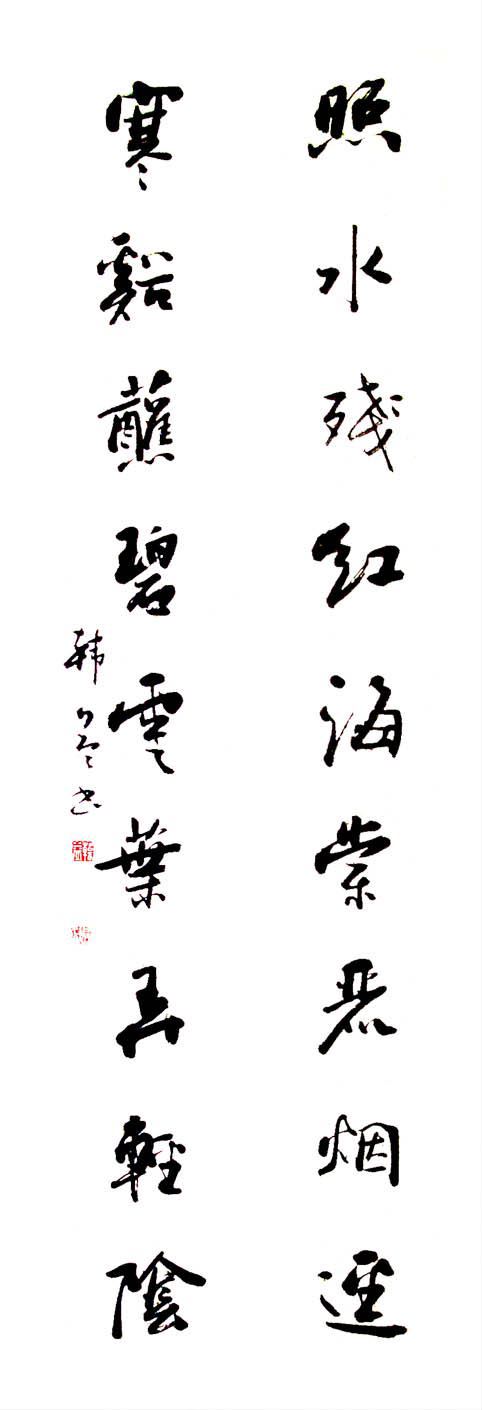 照水殘紅海棠晨烟逕
寒谿蘸碧雲葉弄輕陰
韩书